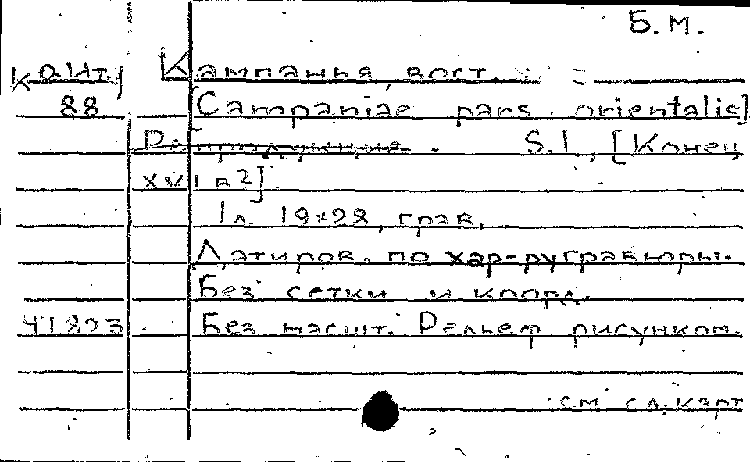 Б.М.
К Ант/ Кампанья, вост.
88 [Campaniae pars orientalis]
Репродукция. S.l., [Конец
XVI в?]
1 л. 19×28, грав.
Датиров. по хар-ру гравюры.
Без сетки и коорд.
41823 Без масшт. Рельеф рисунком.
см. сл. карт